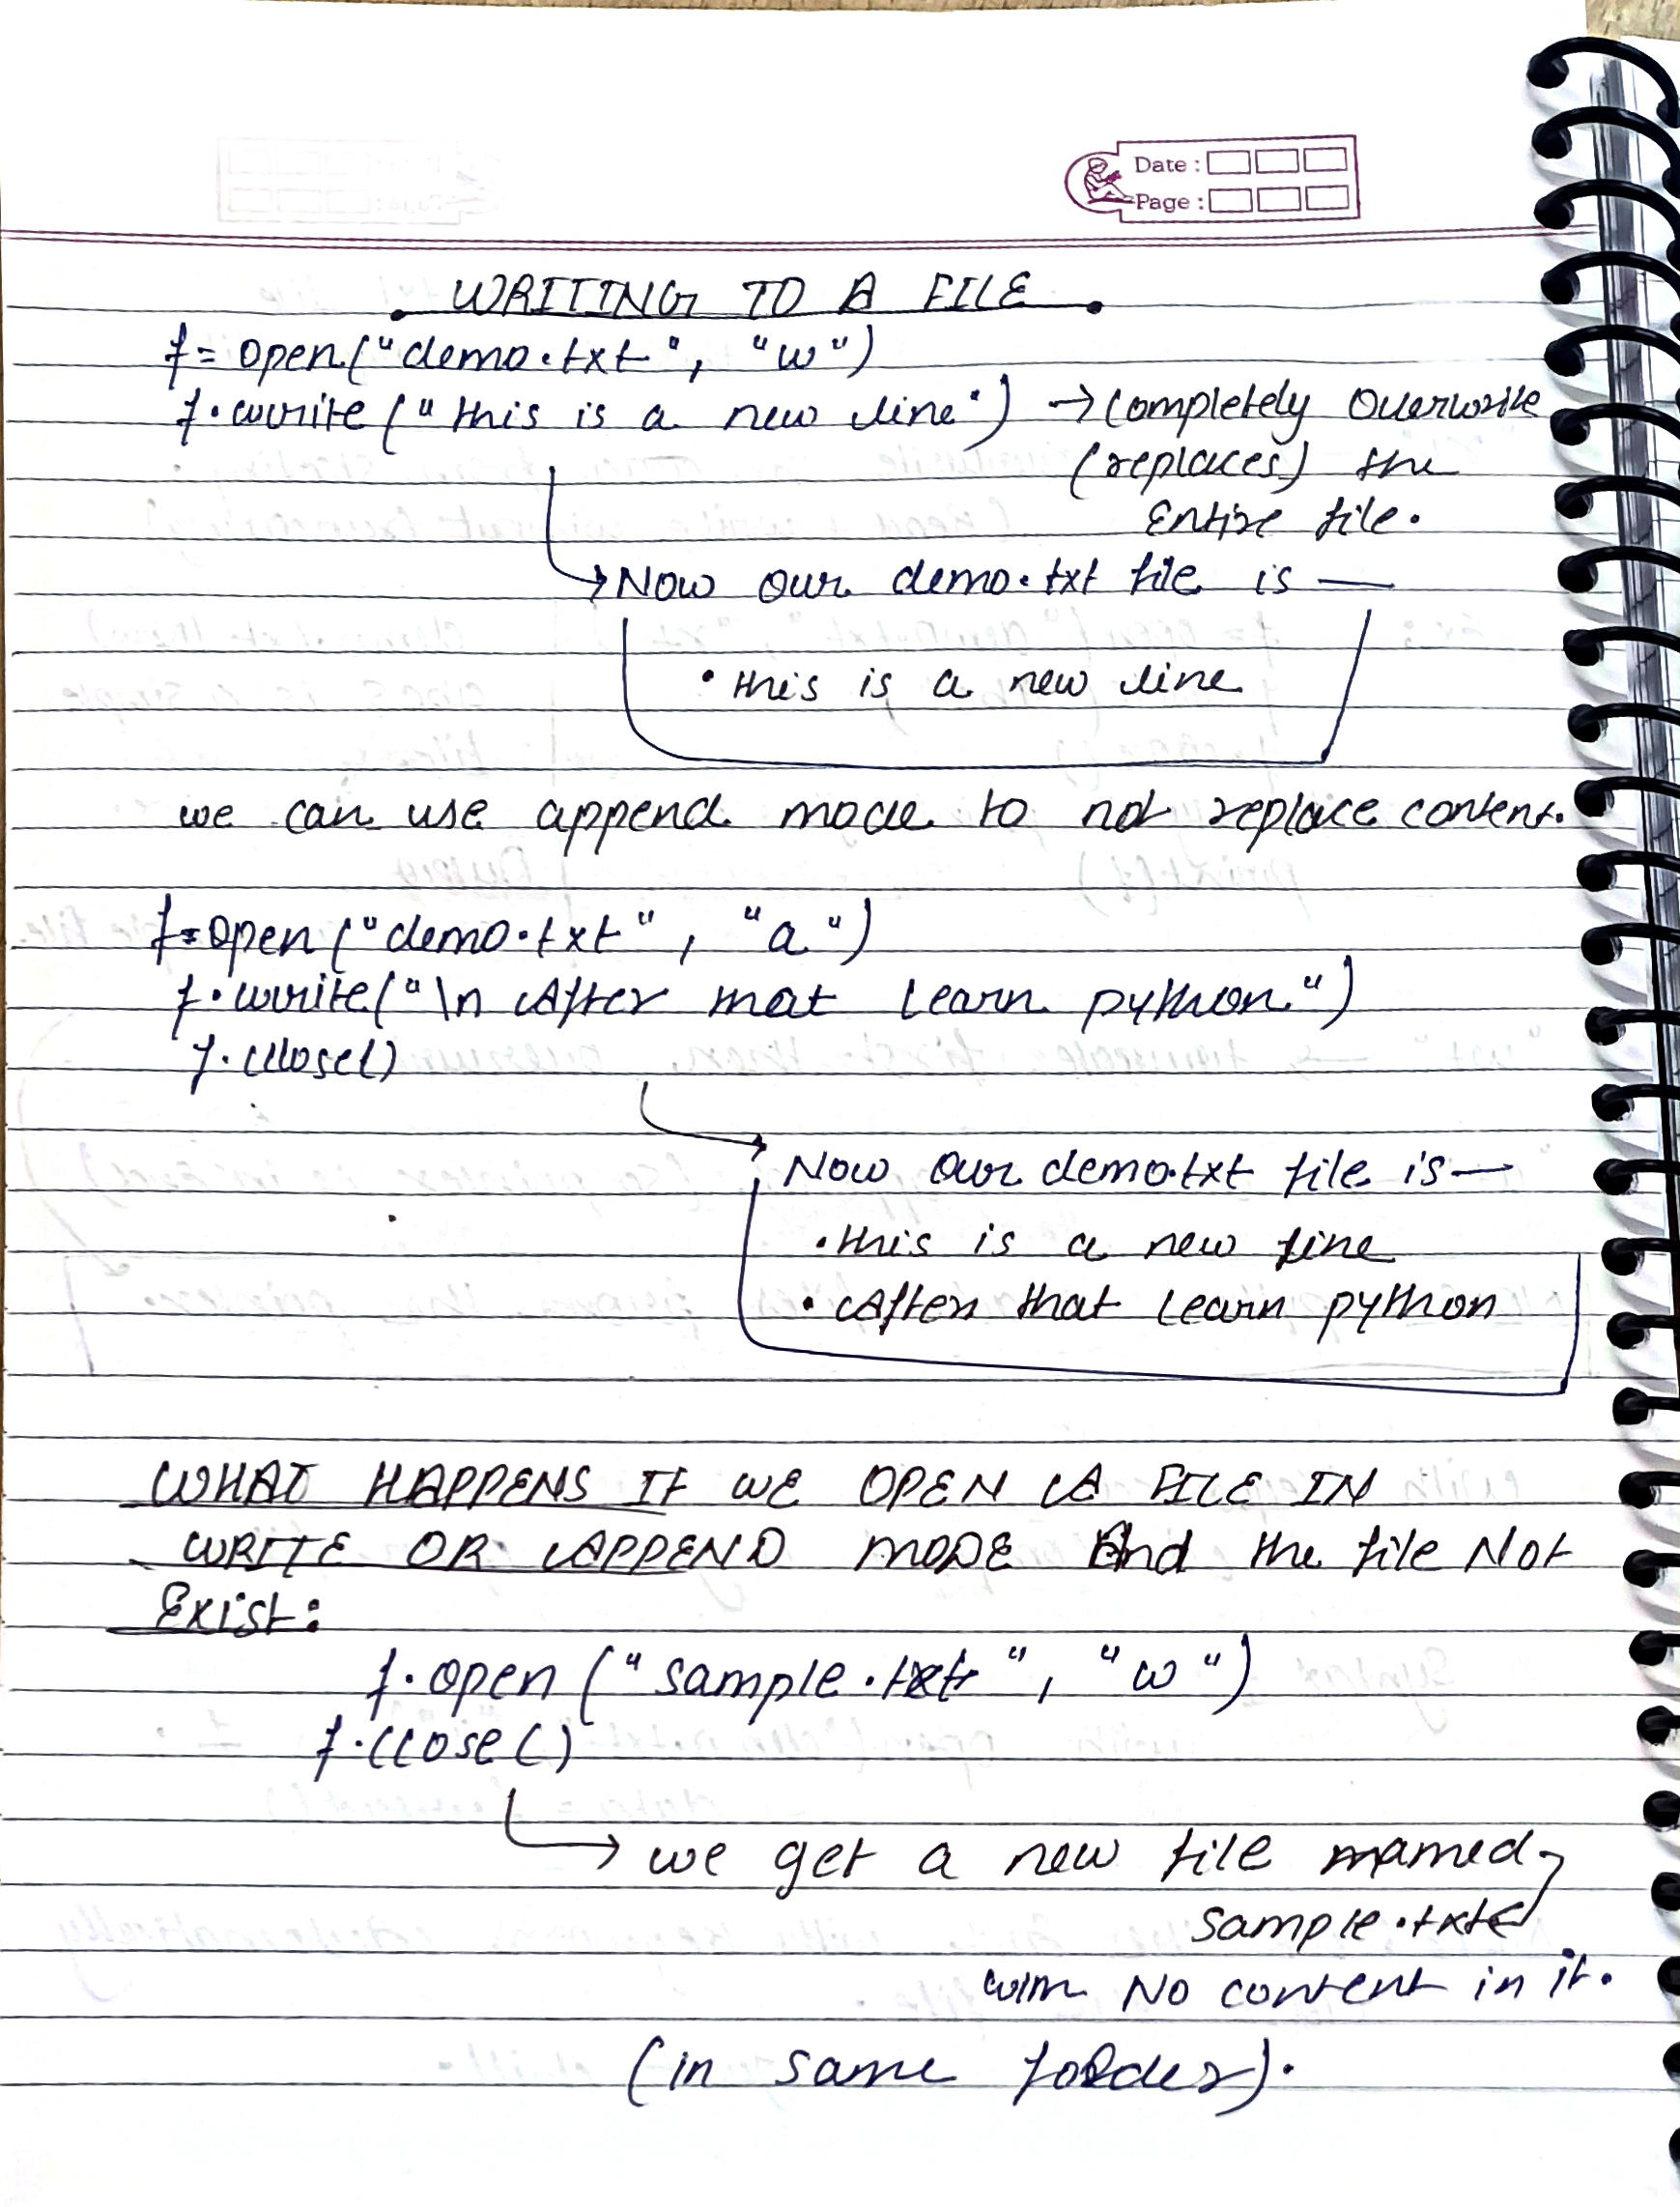 Date :
Page :
WRITING TO A FILE
f= open("demo.txt", "w")
f.write("this is a new line") → completely overwrite
(replaces) the
Entire file.
→ Now our demo.txt file is —
• this is a new line
we can use append mode to not replace content.
f=open("demo.txt", "a")
f.write("\n After that learn python")
f.close()
Now our demo.txt file is —
• this is a new line
• After that learn python
WHAT HAPPENS IF WE OPEN A FILE IN
WRITE OR APPEND MODE And the file Not
Exist:
f.open ("sample.txt", "w")
f.close()
→ we get a new file named
sample.txt
with No content in it.
(in same folder).